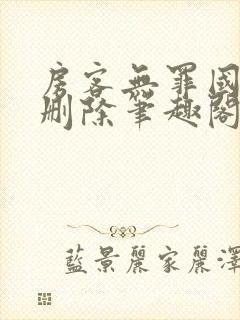 房客無罪國
刪除筆趣閣
藍景麗家麗澤